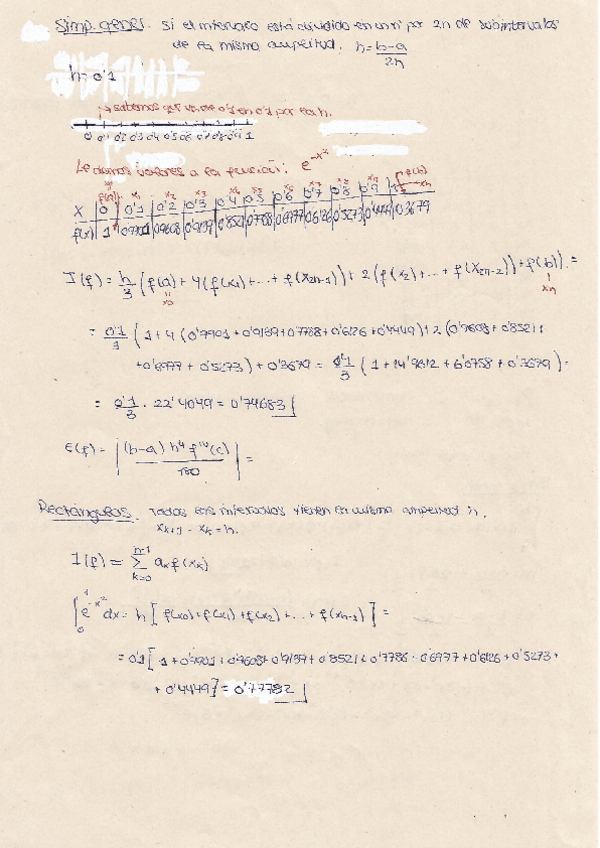 Simp. gener. Si el intervalo está dividido en un nº par 2n de subintervalos
de la misma amplitud. h = b-a / 2n
h = 0'1
→ sabemos que va de 0'1 en 0'1 por la h.
0 0'1 0'2 0'3 0'4 0'5 0'6 0'7 0'8 0'9 1
Le damos valores a la función: e^-x²
x₁ x₂ x₃ x₄ x₅ x₆ x₇ x₈ x₉ f(b)
X 0 0'1 0'2 0'3 0'4 0'5 0'6 0'7 0'8 0'9
f(x) 1 0'9901 0'9608 0'9139 0'8521 0'7788 0'6977 0'6126 0'5273 0'4449 0'3679
I(f) = h/3 (f(a) + 4(f(x₁) + ... + f(x2n-1)) + 2(f(x₂) + ... + f(x2n-2)) + f(b)) =
x₀ xn
= 0'1/3 (1 + 4(0'9901 + 0'9139 + 0'7788 + 0'6126 + 0'4449) + 2(0'9608 + 0'8521 +
+ 0'6977 + 0'5273) + 0'3679 = 0'1/3 (1 + 14'9612 + 6'0758 + 0'3679) .
= 0'1/3 · 22'4049 = 0'74683
E(f) = | (b-a) h⁴ f^IV(c) / 180 | =
Rectángulos. Todos los intervalos tienen la misma amplitud h.
xk+1 - xk = h.
I(f) = n-1 Σ k=0 ak f(xk)
∫₀¹ e^-x² dx = h [f(x0) + f(x1) + f(x2) + ... + f(xn-1)] =
= 0'1 [1 + 0'9901 + 0'9608 + 0'9139 + 0'8521 + 0'7788 + 0'6977 + 0'6126 + 0'5273 +
+ 0'4449] = 0'77782